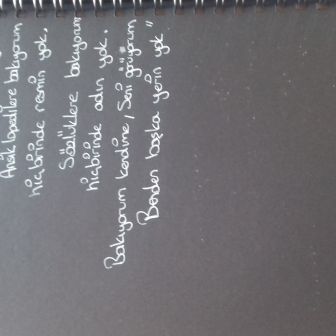 Ansiklopedilere bakıyorum
hiçbirinde resmin yok,
Sözlüklere bakıyorum
hiçbirinde adın yok.
Bakıyorum kendime, Seni görüyorum
Benden başka yerin yok"